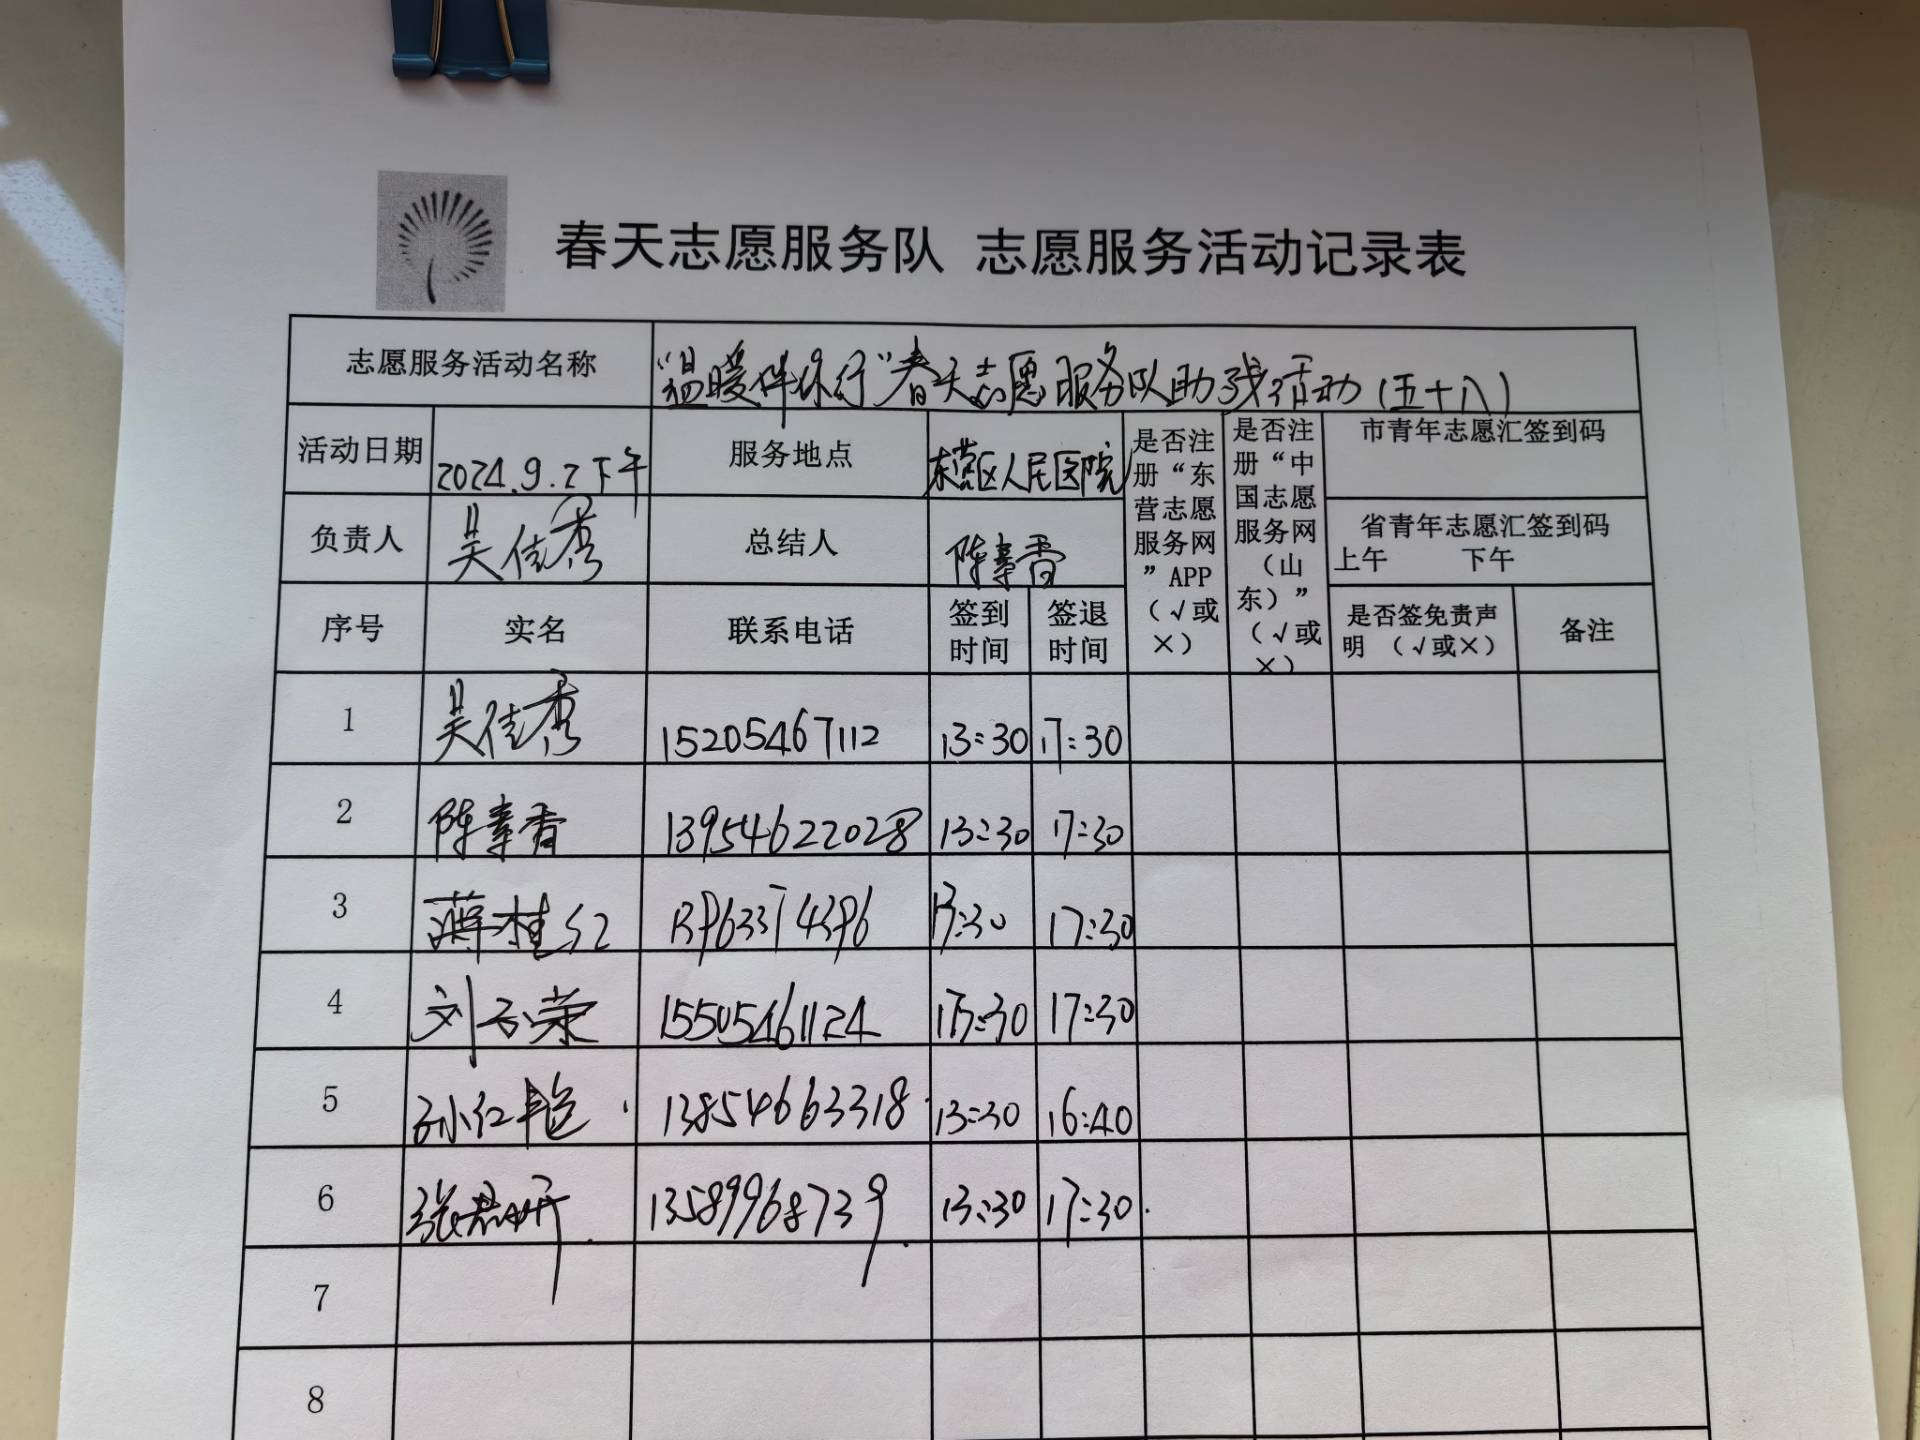 春天志愿服务队 志愿服务活动记录表
志愿服务活动名称 “温暖伴你行”春天志愿服务队助残活动(五十八)
活动日期 2024.9.2下午 服务地点 东营区人民医院 是否注册“东营志愿服务网”APP（√或×） 是否注册“中国志愿服务网（山东）”（√或×） 市青年志愿汇签到码
负责人 吴佳秀 总结人 陈素香 省青年志愿汇签到码
上午 下午
序号 实名 联系电话 签到时间 签退时间 是否签免责声明 （√或×） 备注
1 吴佳秀 15205467112 13:30 17:30
2 陈素香 13954622028 13:30 17:30
3 薄桂红 13:30 17:30
4 刘玉荣 15505461124 13:30 17:30
5 孙仁艳 13854663318 13:30 16:40
6 张君妍 13589968739 13:30 17:30
7
8